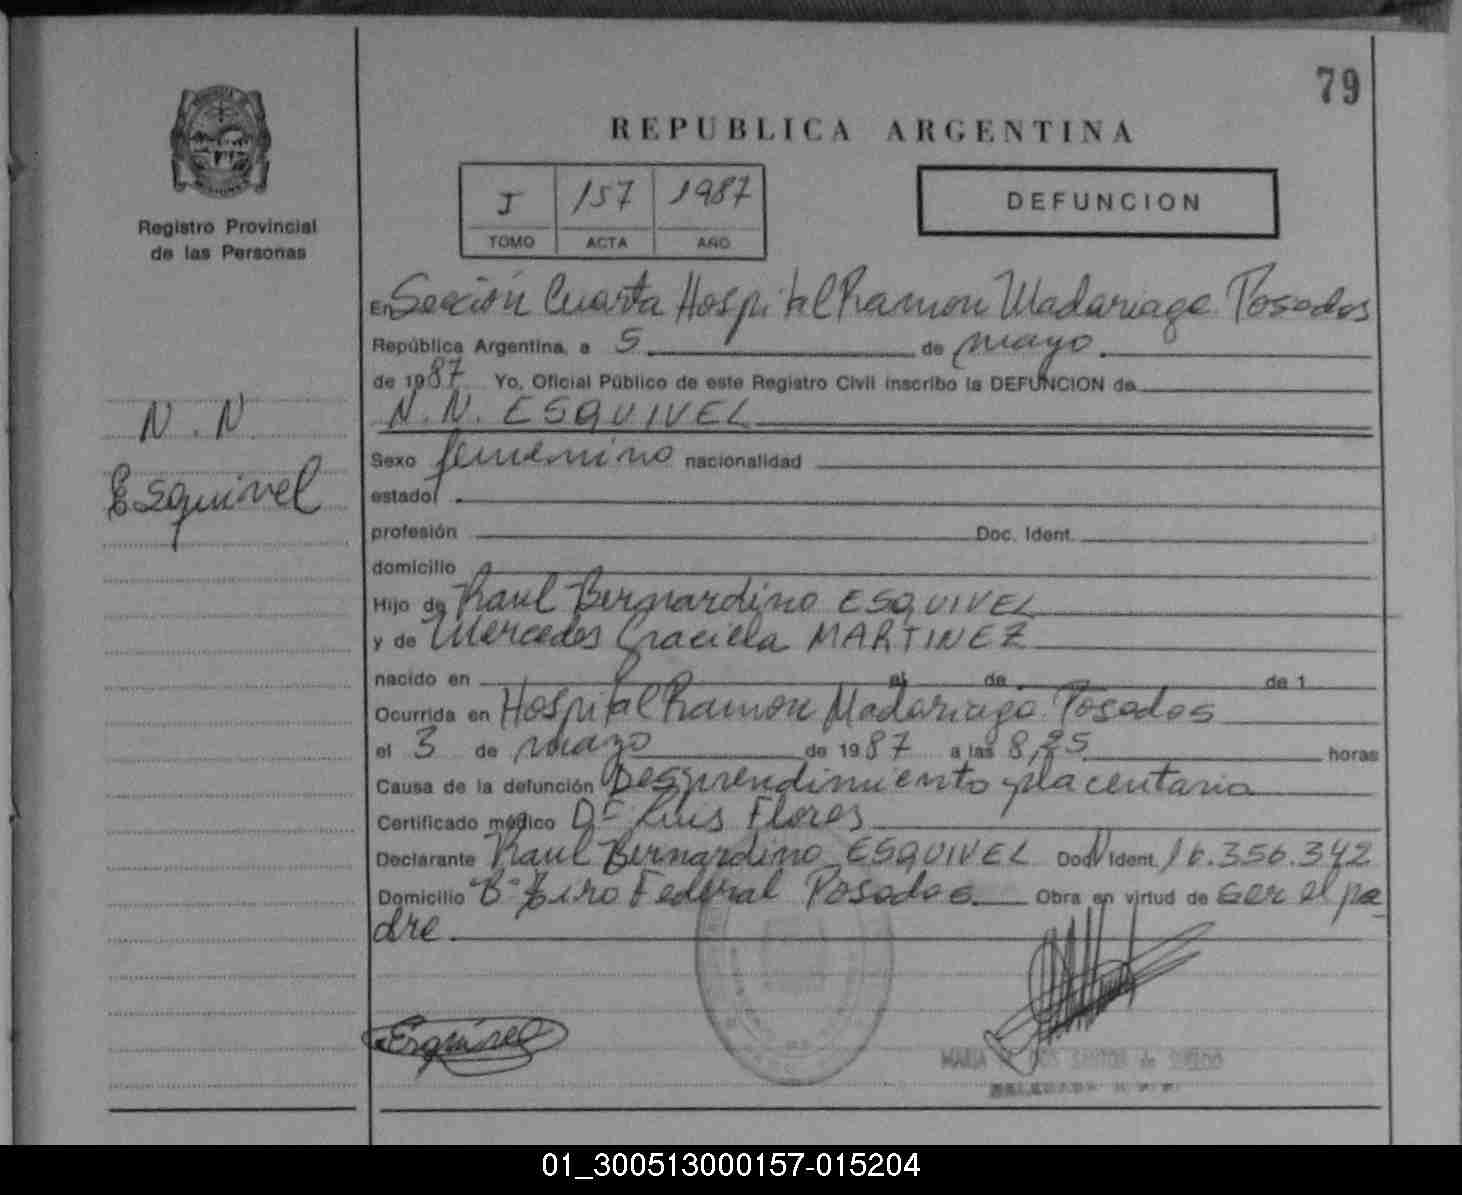 79
REPUBLICA ARGENTINA
Registro Provincial
de las Personas
I 157 1987
TOMO ACTA AÑO
DEFUNCION
En Sección Cuarta Hospital Ramon Madariaga Posadas
República Argentina, a 5 de mayo
de 1987 Yo, Oficial Público de este Registro Civil inscribo la DEFUNCION de
N.N. ESQUIVEL
N.N
Esquivel
Sexo femenino nacionalidad
estado
profesión Doc. Ident.
domicilio
Hijo de Raul Bernardino ESQUIVEL
y de Mercedes Graciela MARTINEZ
nacido en el de de 1
Ocurrida en Hospital Ramon Madariaga Posadas
el 3 de mayo de 1987 a las 8,25 horas
Causa de la defunción Desprendimiento placentario
Certificado médico Dr Luis Flores
Declarante Raul Bernardino ESQUIVEL Doc N Ident. 16.356.342
Domicilio "B" Federal Posadas Obra en virtud de ser el pa-
dre
Esquivel
MARIA DOS SANTOS de
DELEGADA
01_300513000157-015204